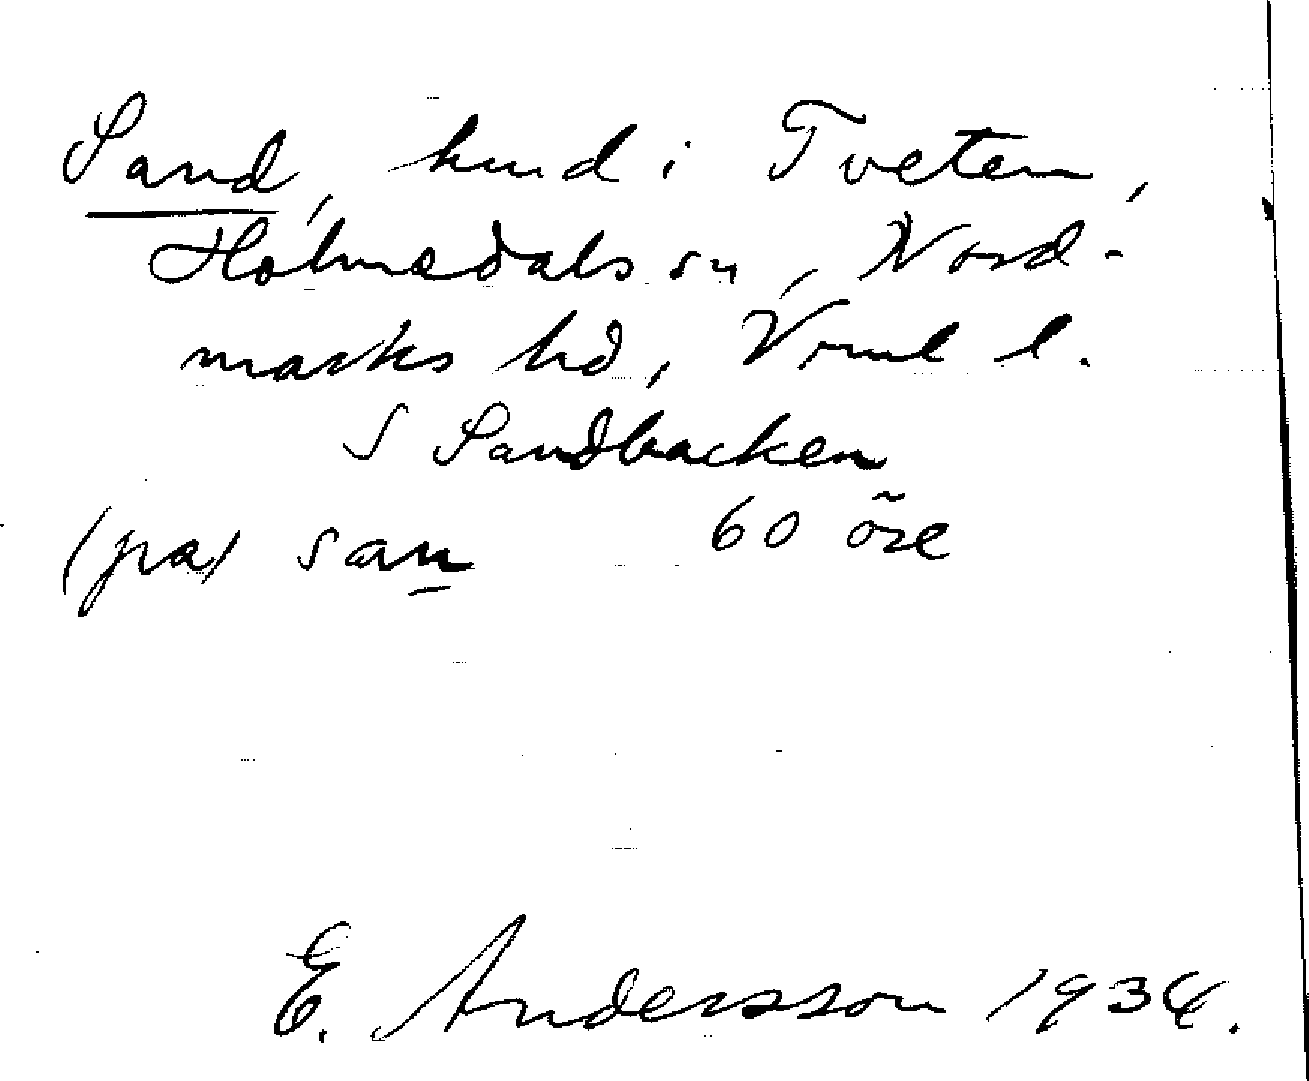 Sand, hmd i Tveten,
Holmedals sn, Nord-
marks hd, Vrml l.
S Sandbacken
(på) san 60 öre
E. Andersson 1934.